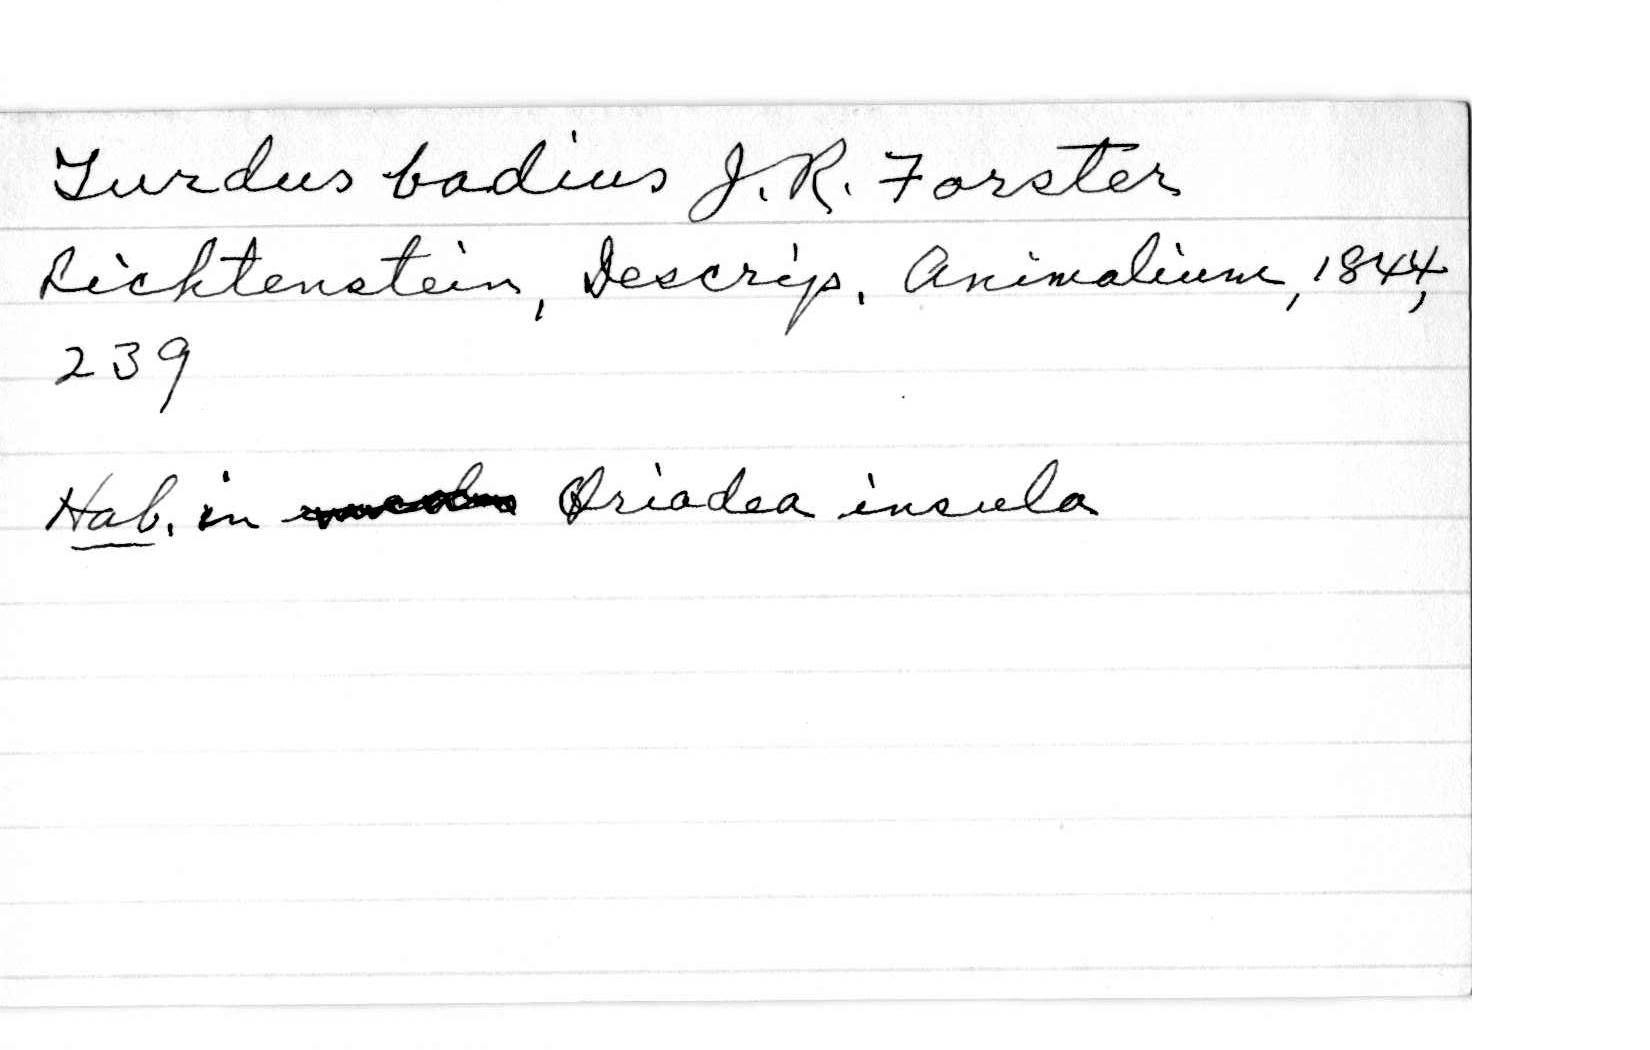 Turdus badius J. R. Forster
Lichtenstein, Descrip. Animalium, 1844,
239
Hab. in Oriadea insula